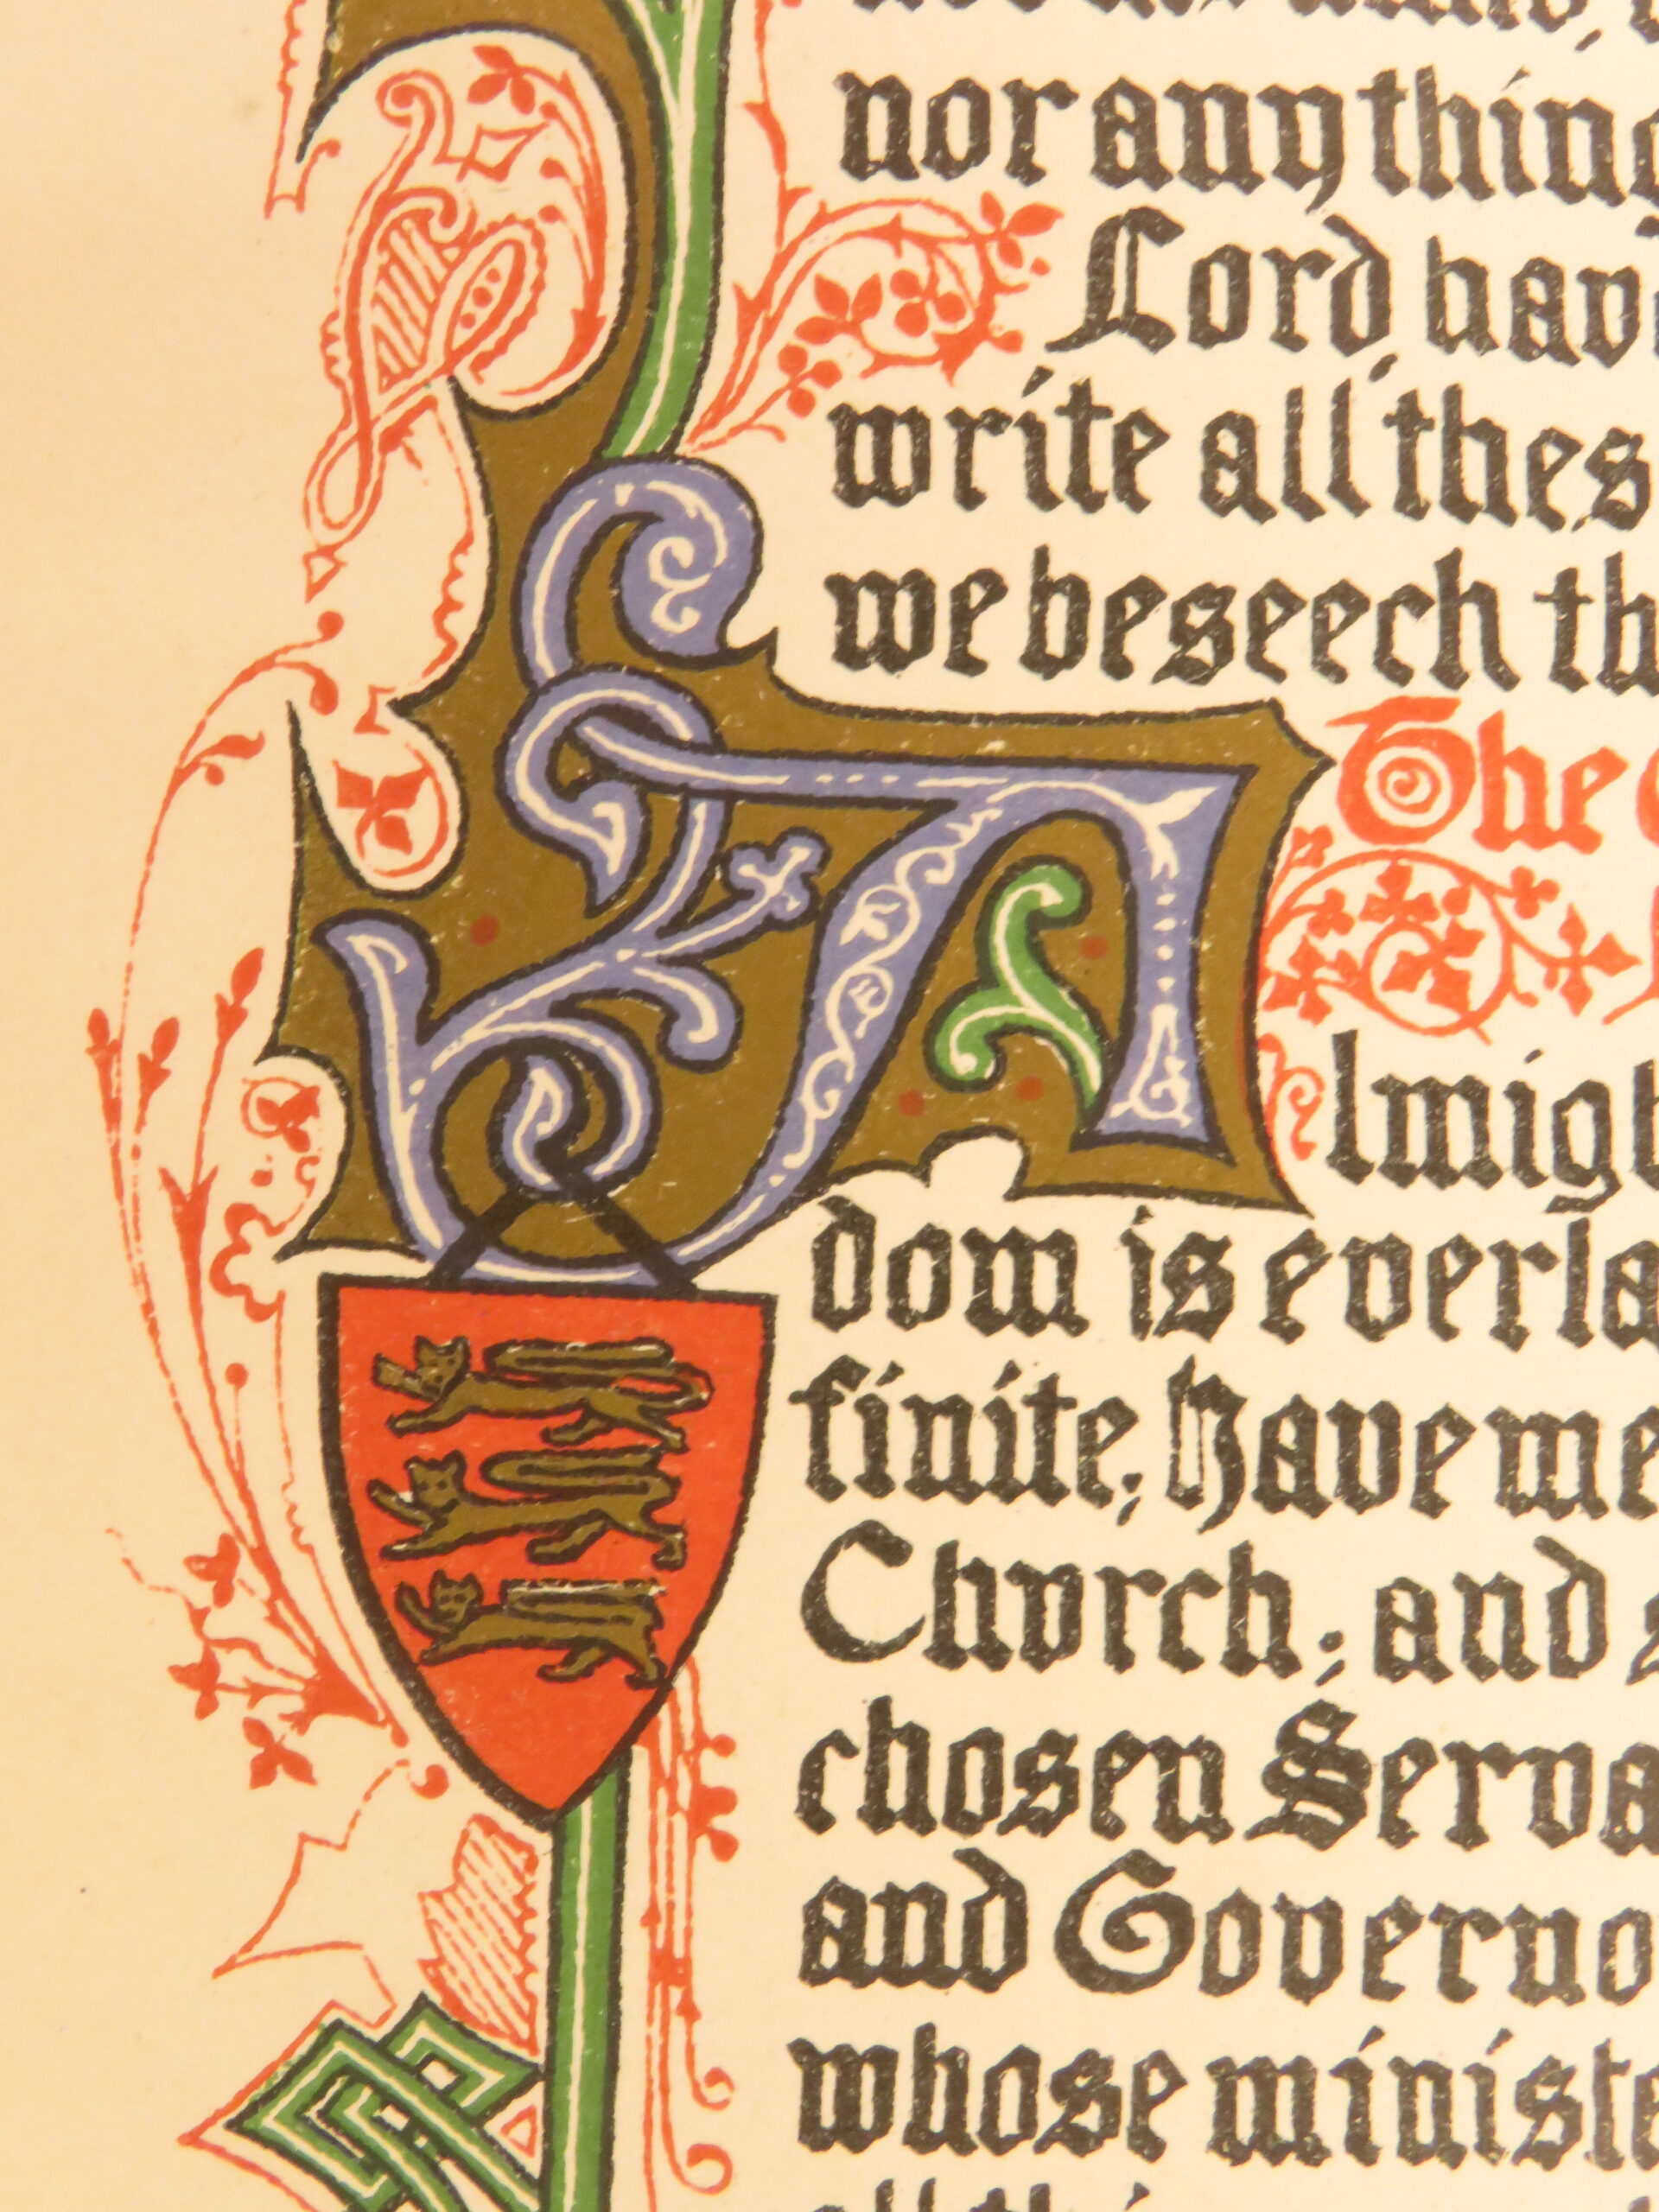 nor any thing
Lord, hav
write all thes
we beseech th
The
A lmigh
dom is everla
finite; Have me
Chvrch; and
chosen Serva
and Governo
whose ministe